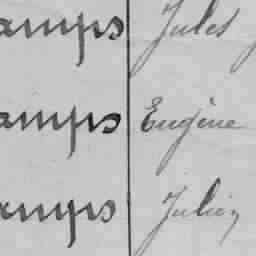 amps Jules
amps Eugène
amps Julien